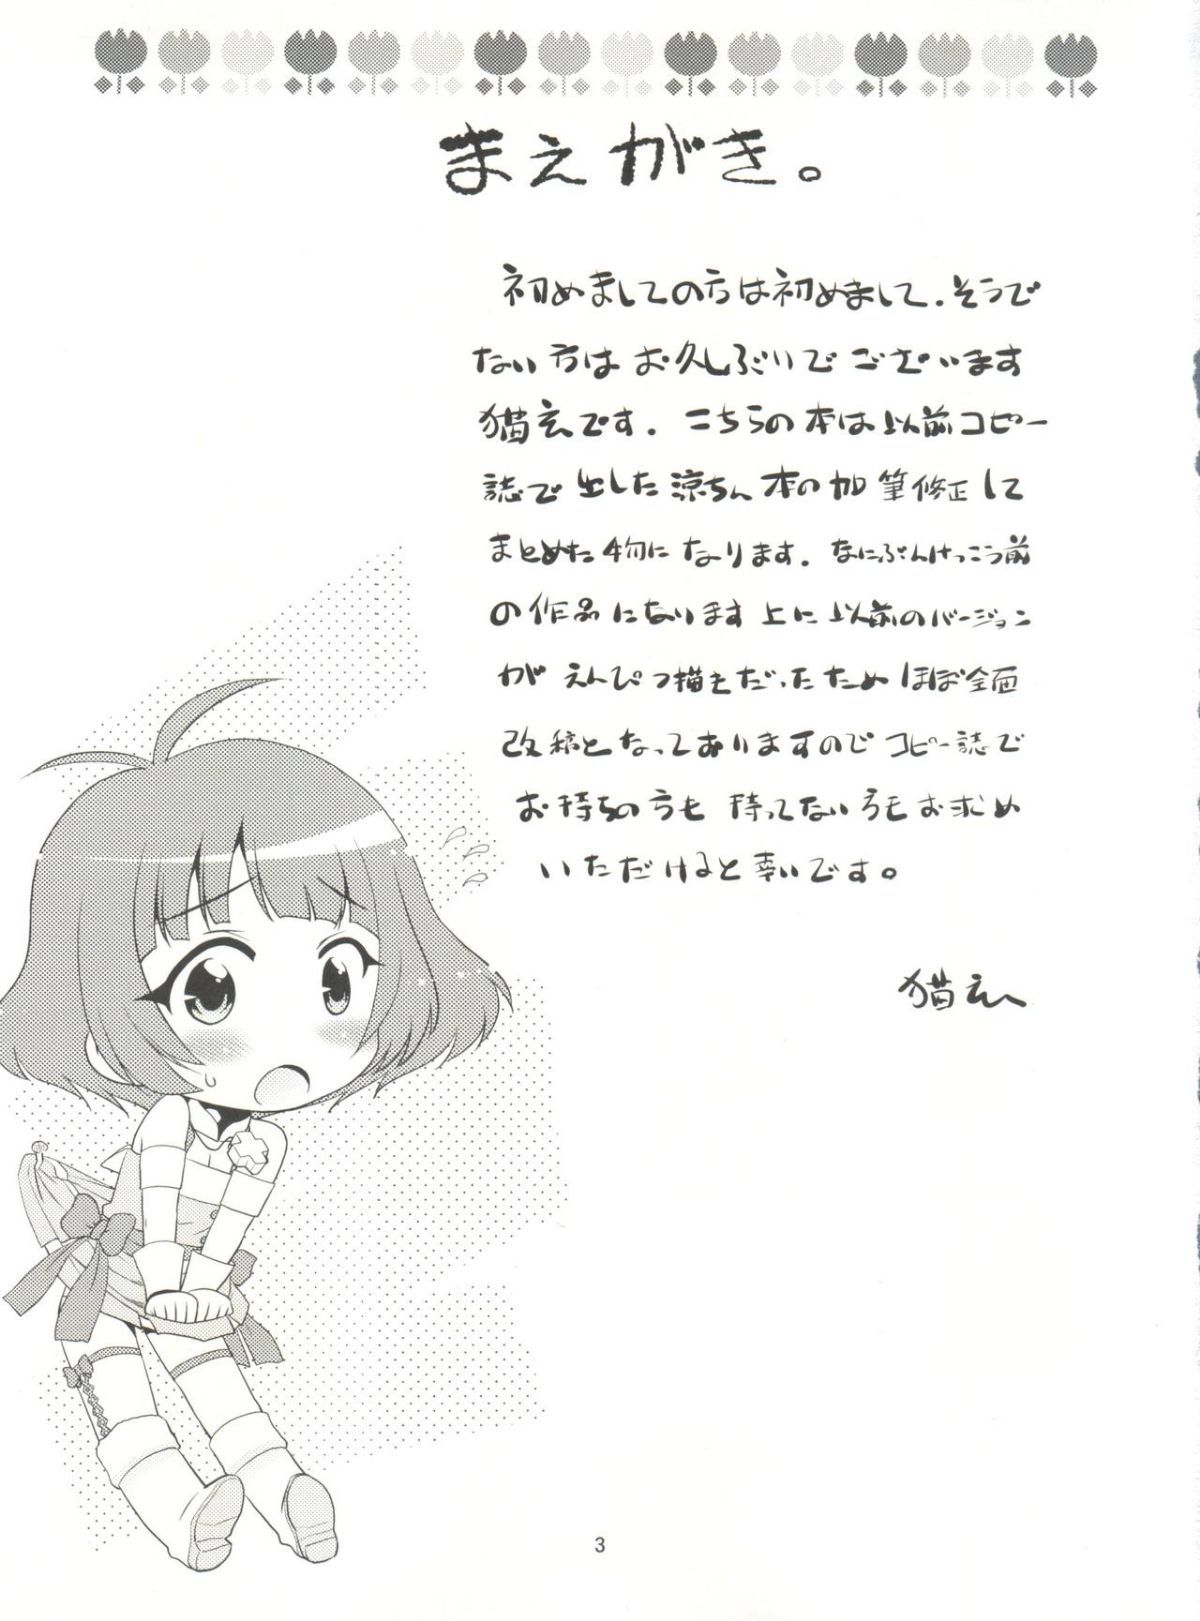 まえがき。
初めましての方は初めまして．そうで
ない方はお久しぶいでございます
猫玄です．こちらの本は以前コピー
誌で出した涼ちん本の加筆修正して
まとめた物になります．なにぶんけっこう前
の作品になります上に以前のバージョン
がえんぴつ描きだったためほぼ全面
改稿となっておりますのでコピー誌で
お持ちの方も持ってない方もお求め
いただけると幸いです。
猫玄
3